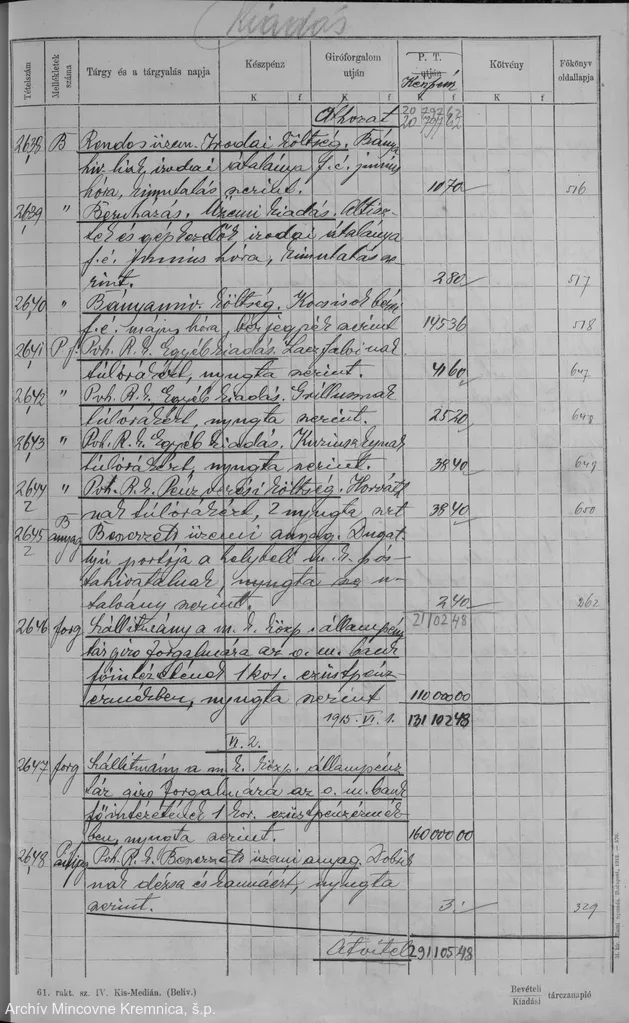 Kiadás
Tételszám
Mellékletek száma
Tárgy és a tárgyalás napja
Készpénz
Giróforgalom útján
P. T. útján
Készpénz
Kötvény
Főkönyv oldallapja
K f K f K f K f
Áthozat 20 797 62
20 797 62
2638 B Rendes üzem. Irodai költség. Bánya
hiv. irodai átalánya f. é. június
hóra, kimutatás szerint. 10 70 516
2639 " Beruházás. Üzemi kiadás. Altisz-
tek és gépkezelők irodai átalánya
f. é. június hóra, kimutatás sze-
rint. 2 80 517
2640 " Bányaműv. költség. Kocsisok bére
f. é. május hóra, bérjegyzék szerint 145 36 518
2641 P. f. Pvh. R. k. Egyéb kiadás. Laczfalvinak
túlórákért, nyugta szerint. 41 60 647
2642 " Pvh. R. k. Egyéb kiadás. Grillusnak
túlórákért, nyugta szerint. 25 20 648
2643 " Pvh. R. k. Egyéb kiadás.
túlórákért, nyugta szerint. 38 40 649
2644 " Pvh. R. k. Pénzverési költség. Horváth
2 nak túlórákért, 2 nyugta szt 38 40 650
2645 B Beszerzett üzemi anyag. Dugat-
2 anyag tyú portója a helybeli m. k. pós-
tahivatalnak, nyugta és u-
talvány szerint. 2 40 262
21 102 48
2646 forg Szállítmány a m. k. közp. állampénz
tár giro forgalmára az o. m. bank
főintézetének 1 kor. ezüstpénz
érmékben, nyugta szerint 110 000 00
1915. VI. 1. 131 102 48
VI. 2.
2647 forg Szállítmány a m. k. közp. állampénz
tár giro forgalmára az o. m. bank
főintézetének 1 kor. ezüstpénzérmék-
ben, nyugta szerint. 160 000 00
2648 Pvh. R. k. Beszerzett üzemi anyag.
nak dézsa és kannáért, nyugta
szerint. 3 329
Átvitel 291 105 48
61. rakt. sz. IV. Kis-Medián. (Beliv.)
Bevételi
Kiadási tárczanapló
Archív Mincovne Kremnica, š.p.